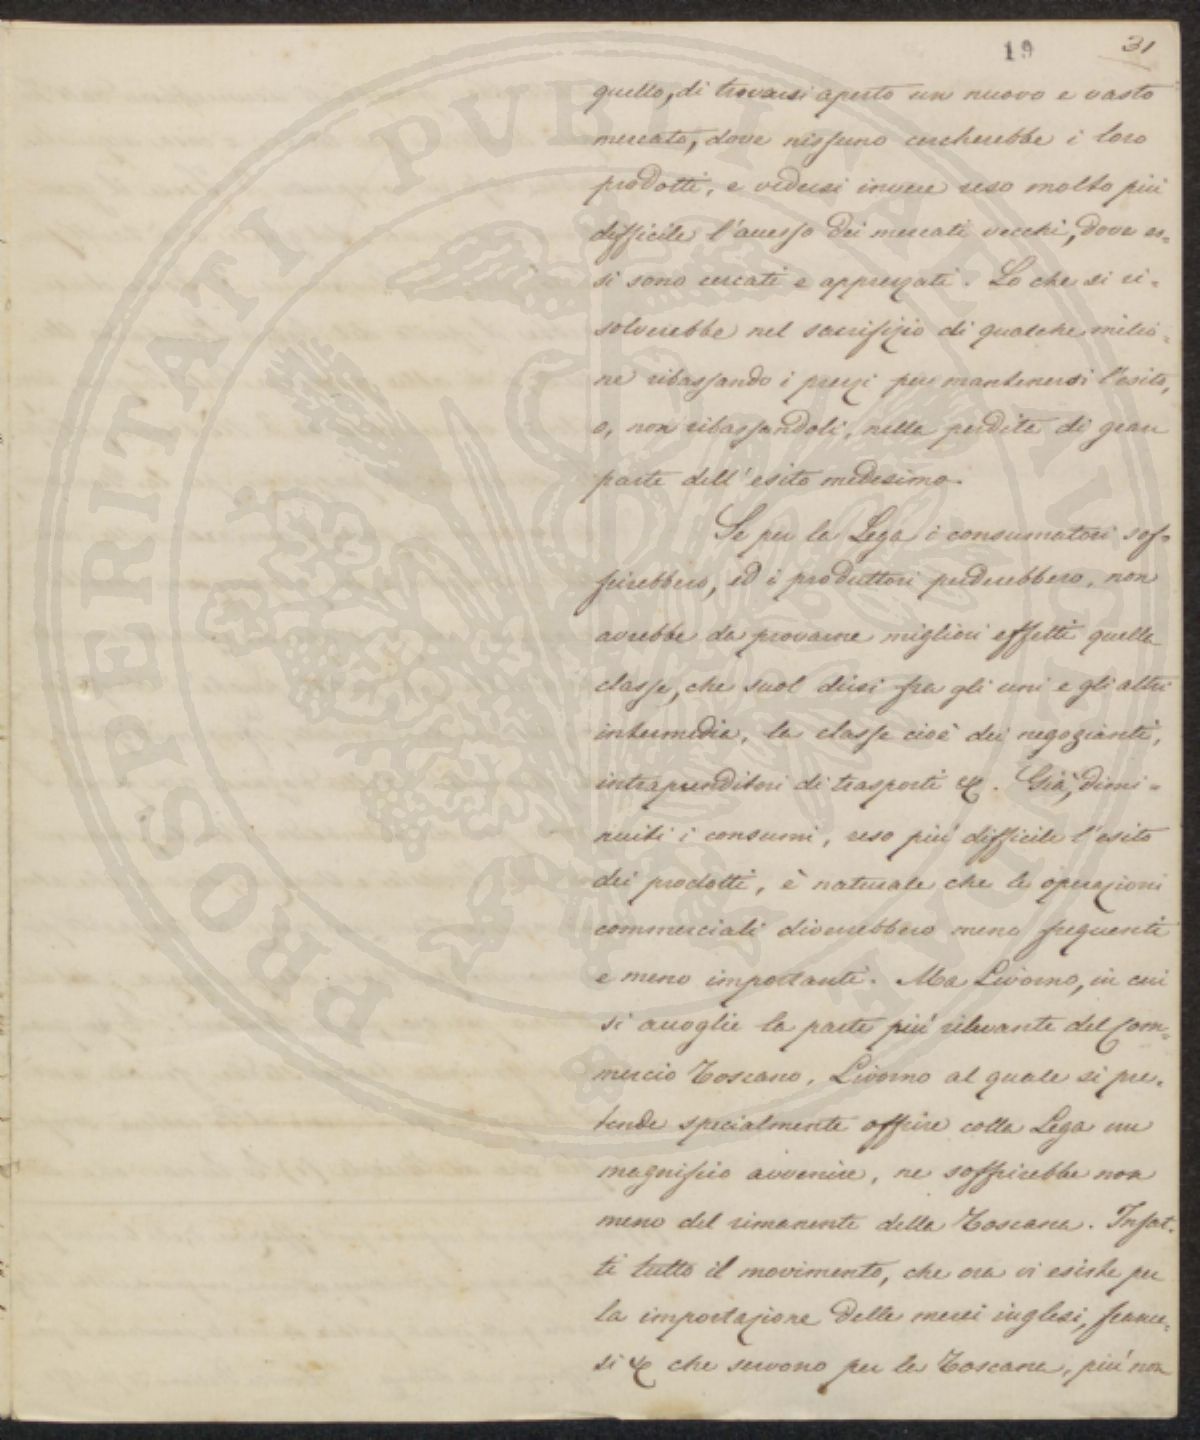 19 31
quello, di trovarsi aperto un nuovo e vasto
mercato, dove nissuno cercherebbe i loro
prodotti, e vedersi invece reso molto più
difficile l'accesso dei mercati vecchi, dove es-
si sono cercati e apprezzati. Lo che si ri-
solverebbe nel sacrifizio di qualche milio-
ne ribassando i prezzi per mantenersi l'esito,
o, non ribassandoli, nella perdita di gran
parte dell'esito medesimo.
Se per la Lega i consumatori sof-
frirebbero, ed i produttori perderebbero, non
avrebbe da provarne migliori effetti quella
classe, che suol dirsi fra gli uni e gli altri
intermedia, la classe cioè dei negozianti,
intraprenditori di trasporti &c. Già, dimi-
nuiti i consumi, reso più difficile l'esito
dei prodotti, è naturale che le operazioni
commerciali diverrebbero meno frequenti
e meno importanti. Ma Livorno, in cui
si accoglie la parte più rilevante del Com-
mercio Toscano, Livorno al quale si pre-
tende specialmente offrire colla Lega un
magnifico avvenire, ne soffrirebbe non
meno del rimanente della Toscana. Infat-
ti tutto il movimento, che ora vi esiste per
la importazione delle merci inglesi, france-
si &c che servono per la Toscana, più non
PROSPERITATI PVBLICAE AVGENDAE